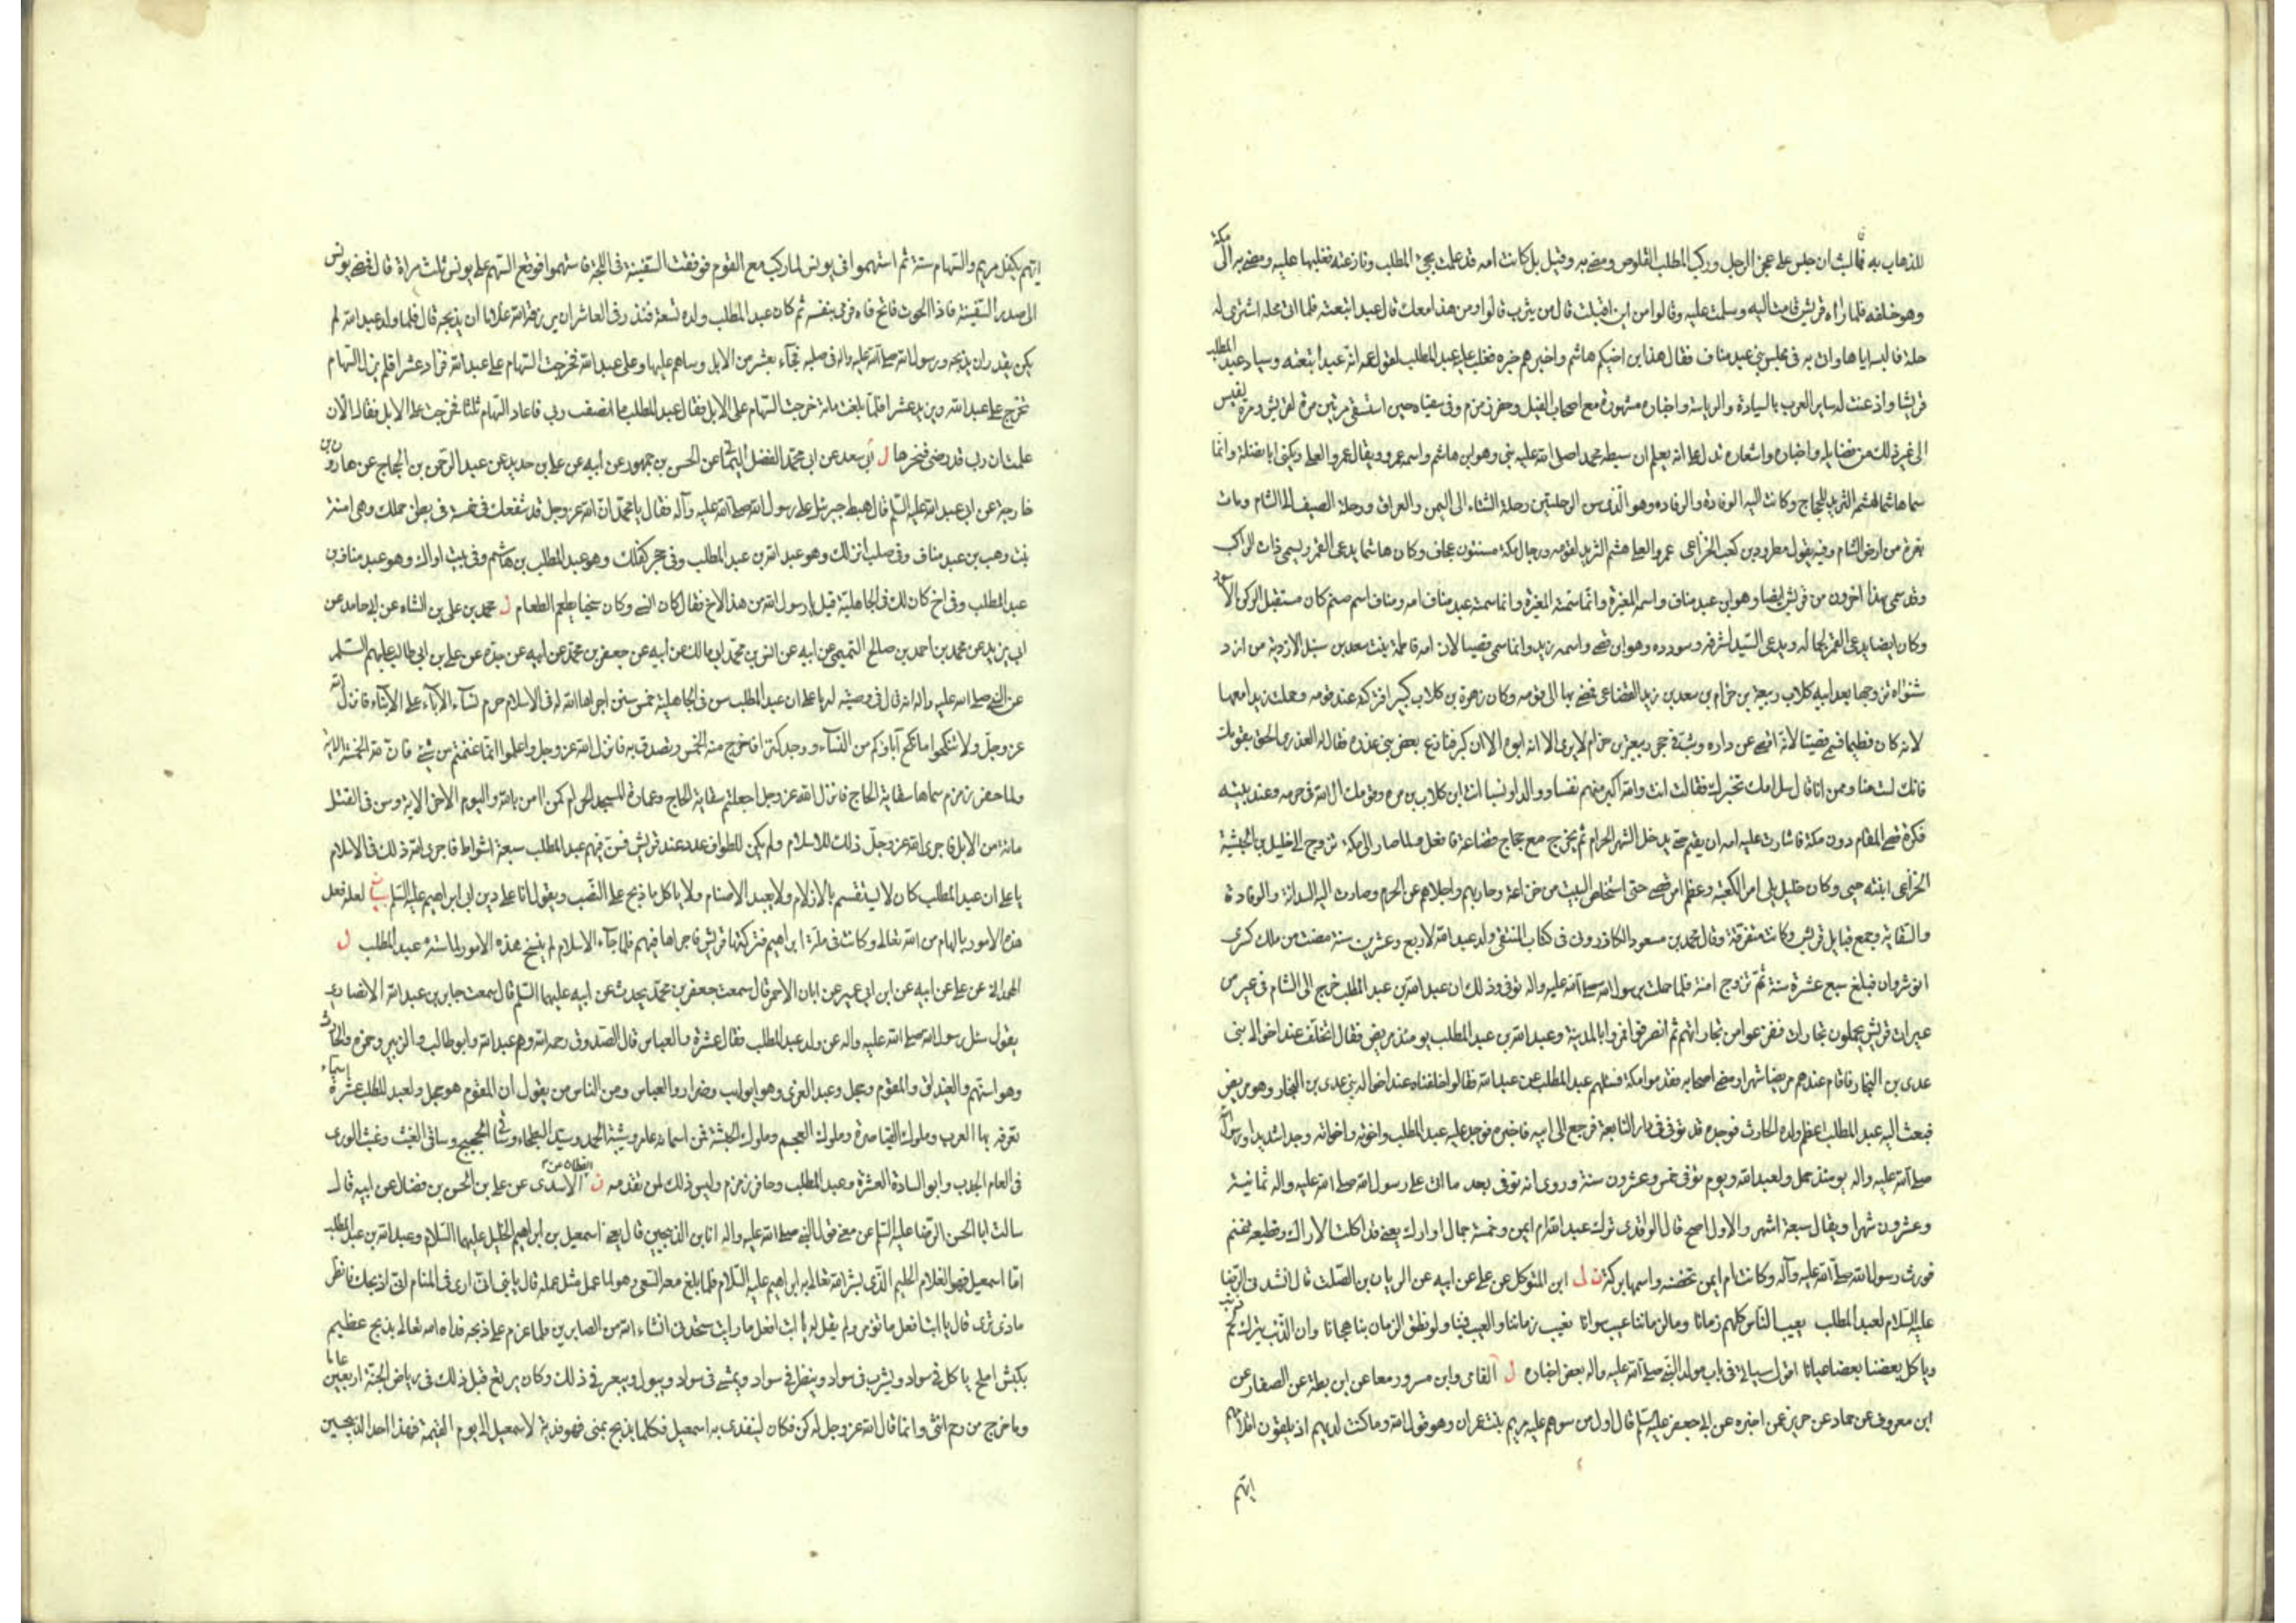 للذهاب به فما لبث ان جلس على عجز الرحل وركب المطلب القلوص ومضى به وقيل بل كانت امه قد علمت بمجئ المطلب ونازعته فغلبها عليه ومضى به الى مكة
وهو خلفه فلما راه قريش قامت اليه وسلمت عليه وقالوا من اين اقبلت قال من يثرب قالوا ومن هذا معك قال عبد ابتعته فلما اتى محله اشترى له
حلة فالبسه اياها واتى به فى مجلس بنى عبد مناف فقال هذا ابن اخيكم هاشم واخبرهم خبره فغلب عليه عبد المطلب لقول عمه انه عبد ابتعته وساد عبد المطلب
قريشا واذعنت له ساير العرب بالسيادة والرياسة واخباره مشهورة مع اصحاب الفيل وحفر زمزم وفى سقياه حين استسقى مرتين مرة لقريش ومرة لقيس
الى غير ذلك من فضايله واخباره واشعاره تدل على انه يعلم ان سبطه محمد صلى الله عليه نبى وهو ابن هاشم واسمه عمرو ويقال عمرو العلى ويكنى ابا نضلة وانما
سمى هاشما لهشمه الثريد للحاج وكانت اليه الوفادة والرفاده وهو الذى سن الرحلتين رحلة الشتاء الى اليمن والعراق ورحلة الصيف الى الشام ومات
بغزة من ارض الشام وفيه يقول مطرود بن كعب الخزاعى عمرو العلى هشم الثريد لقومه ورجال مكة مسنتون عجاف وكان هاشما يدعى القمر ويسمى زاد الراكب
وقد سمى بهذا اخرون من قريش ايضا وهو ابن عبد مناف واسمه المغيرة وانما سمته المغيرة وانما سمته عبد مناف امه ومناف اسم صنم كان مستقبل الركن الاسود
وكان ايضا يدعى القمر لجماله ويدعى السيد لشرفه وسودده وهو ابن قصى واسمه زيد وانما سمى قصيا لان امه فاطمة بنت سعد بن سنبل الازدية من ازد
شنواه تزوجها بعد ابيه كلاب ربيعة بن حزام بن سعد بن زيد القضاعى فمضى بها الى قومه وكان زهرة بن كلاب كبيرا فتركته عند قومه وحملت زيدا معها
لانه كان فطيما فسمى قصيا لانه اقصى عن داره وشب فى حجر ربيعة بن حزام لا يرى الا انه ابوه الا ان كبر فتنازع بعض بنى عذره فقال له العذرى الحق بقومك
فانك لست منا وممن انا قال سل امك تخبرك فقالت انت والله اكرم منهم نفسا ووالدا ونسبا انت ابن كلاب بن مره وقومك ال الله فى حرمه وعند بيته
فكره قصى المقام دون مكة فاشارت عليه امه ان يقيم حتى يدخل الشهر الحرام ثم يخرج مع حجاج قضاعة فافعل فلما صار الى مكة تزوج الى خليل بن الحبشية
الخزاعى ابنته حبى وكان خليل يلى امر الكعبة وعظم امر قصى حتى استخلص البيت من خزاعة وحاربهم واجلاهم عن الحرم وصارت اليه السدانة والوفادة
والسقاية وجمع قبايل قريش وكانت متفرقة وقال محمد بن مسعود الكازرونى فى كتاب المنتقى ولد عبد الله لاربع وعشرين سنة مضت من ملك كسرى
انوشروان فبلغ سبع عشرة سنة ثم تزوج امنة فلما حملت برسول الله صلى الله عليه واله توفى وذلك ان عبد الله بن عبد المطلب خرج الى الشام فى عير من
عيرات قريش يحملون تجارات ففزعوا من تجاراتهم ثم انصرفوا فمروا بالمدينة وعبد الله بن عبد المطلب يومئذ مريض فقال اتخلف عند اخوالى بنى
عدى بن النجار فاقام عندهم مريضا شهرا ومضى اصحابه فقدموا مكة فسئلهم عبد المطلب عن عبد الله فقالوا خلفناه عند اخواله بنى عدى بن النجار وهو مريض
فبعث اليه عبد المطلب اعظم ولده الحارث فوجده قد توفى فى دار التابعة فرجع الى ابيه فاخبره فوجد عليه عبد المطلب واخوته واخواته وجدا شديدا ورسول الله
صلى الله عليه واله يومئذ حمل ولعبد الله يوم توفى خمس وعشرون سنة وروى انه توفى بعد ما اتى على رسول الله صلى الله عليه واله ثمانية
وعشرون شهرا ويقال سبعة اشهر والاول اصح قال الواقدى ترك عبد الله ام ايمن وخمسة جمال اوارك يعنى قد اكلت الاراك وقطيعة غنم
فورث رسول الله صلى الله عليه وآله وكانت ام ايمن تحضنه واسمها بركة ن لى ابن المتوكل عن على عن ابيه عن الريان بن الصلت قال انشدنى الرضا
عليه السلام لعبد المطلب يعيب الناس كلهم زمانا وما لزماننا عيب سوانا نعيب زماننا والعيب فينا ولو نطق الزمان بنا هجانا وان الذئب يترك لحم ذئب
وياكل بعضنا بعضا عيانا اقول سياتى فى باب مولد النبى صلى الله عليه واله بعض اخباره ل القامى وابن مسرور معا عن ابن بطة عن الصفار عن
ابن معروف عن حماد عن حريز عن اخبره عن ابى جعفر عليه السلم قال اول من سوهم عليه مريم بنت عمران وهو قول الله وما كنت لديهم اذ يلقون اقلامهم
ايهم
ايهم يكفل مريم والسهام ستة ثم استهموا فى يونس لما ركب مع القوم فوقفت السفينة فى اللجة فاستهموا فوقع السهم على يونس ثلث مراة قال فمضى يونس
الى صدر السفينة فاذا الحوت فاتح فاه فرمى بنفسه ثم كان عبد المطلب ولد له تسعة فنذر فى العاشر ان يرزقه الله غلاما ان يذبحه قال فلما ولد عبد الله لم
يكن يقدر ان يذبحه ورسول الله صلى الله عليه واله فى صلبه فجاء بعشر من الابل وساهم عليها وعلى عبد الله فخرجت السهام على عبد الله فزاد عشرا فلم يزل السهام
تخرج على عبد الله ويزيد عشرا فلما بلغت مائة خرجت السهام على الابل فقال عبد المطلب ما انصفت ربى فاعاد السهام ثلثا فخرجت على الابل فقال الآن
علمت ان ربى قد رضى فنحرها ل أبى سعد عن ابى محمد الفضل اليمانى عن الحسن بن جمهور عن ابيه عن على بن حديد عن عبد الرحمن بن الحجاج عن هارون بن
خارجة عن ابى عبد الله عليه السلم قال هبط جبرئيل على رسول الله صلى الله عليه وآله فقال يا محمد ان الله عز وجل قد شفعك فى خمسة فى بطن حملك وهى امنة
بنت وهب بن عبد مناف وفى صلب انزلك وهو عبد الله بن عبد المطلب وفى حجر كفلك وهو عبد المطلب بن هاشم وفى بيت اواك وهو عبد مناف بن
عبد المطلب وفى اخ كان لك فى الجاهلية قيل يا رسول الله من هذا الاخ فقال كان انسى وكان سخيا يطعم الطعام ل محمد بن على بن الشاه عن ابى حامد عن
ابى يزيد عن محمد بن احمد بن صالح التميمى عن ابيه عن انس بن محمد ابى مالك عن ابيه عن جعفر بن محمد عن ابيه عن جده عن على بن ابى طالب عليهم السلم
عن النبى صلى الله عليه واله انه قال فى وصيته له يا على ان عبد المطلب سن فى الجاهلية خمس سنن اجراها الله له فى الاسلام حرم نساء الآباء على الابناء فانزل الله
عز وجل ولا تنكحوا ما نكح آباؤكم من النساء ووجد كنزا فاخرج منه الخمس وتصدق به فانزل الله عز وجل واعلموا انما غنمتم من شئ فان لله الخمسه الاية
ولما حفر زمزم سماها سقاية الحاج فانزل الله عز وجل اجعلتم سقاية الحاج وعمارة المسجد الحرام كمن امن بالله واليوم الاخر الاية وسن فى القتل
مائة من الابل فاجرى الله عز وجل ذلك للاسلام ولم يكن للطواف عدد عند قريش فسن فيهم عبد المطلب سبعة اشواط فاجرى الله ذلك فى الاسلام
يا على ان عبد المطلب كان لا يستقسم بالازلام ولا يعبد الاصنام ولا ياكل ما ذبح على النصب ويقول انا على دين ابى ابراهيم عليه السلم بيان لعله فعل
هذه الامور بالهام من الله تعالى وكانت فى ملة ابراهيم فتركتها قريش فاجراها فيهم فلما جآء الاسلام لم ينسخ هذه الامور لما سنه عبد المطلب ل
الهمدانى عن على عن ابيه عن ابن ابى عمير عن ابان الاحمر قال سمعت جعفر بن محمد يحدث عن ابيه عليهما السلم قال سمعت جابر بن عبد الله الانصارى
يقول سئل رسول الله صلى الله عليه واله عن ولد عبد المطلب فقال عشرة والعباس قال الصدوق رحمه الله وهم عبد الله وابو طالب والزبير وحمزه والحارث
وهو اسنهم والغيداق والمقوم وحجل وعبد العزى وهو ابو لهب وضرار والعباس ومن الناس من يقول ان المقوم هو حجل ولعبد المطلب عشرة اسماء
تعرفه بها العرب وملوك القياصرة وملوك العجم وملوك الحبشة فمن اسمائه عامر وشيبة الحمد وسيد البطحاء وساقى الحجيج وساقى الغيث وغيث الورى
فى العام الجدب وابو السادة العشرة وعبد المطلب وحافر زمزم وليس ذلك لمن تقدمه ن القطان عن الاسدى عن على بن الحسن بن فضال عن ابيه قال
سالت ابا الحسن الرضا عليه السلم عن معنى قول النبى صلى الله عليه واله انا ابن الذبيحين قال يعنى اسمعيل بن ابراهيم الخليل عليهما السلام وعبد الله بن عبد المطلب
اما اسمعيل فهو الغلام الحليم الذى بشر الله تعالى به ابراهيم عليه السلام فلما بلغ معه السعى وهو لما عمل مثل عمله قال يا بنى انى ارى فى المنام انى اذبحك فانظر
ماذى ترى قال يا ابت افعل ما تؤمر ولم يقل له يا ابت افعل ما رايت ستجدنى انشاء الله من الصابرين فلما عزم على ذبحه فداه الله تعالى بذبح عظيم
بكبش املح ياكل فى سواد ويشرب فى سواد وينظر فى سواد ويمشى فى سواد ويبول ويبعر فى ذلك وكان يرتع قبل ذلك فى رياض الجنة اربعين عاما
وما خرج من رحم انثى وانما قال الله عز وجل له كن فكان ليفتدى به اسمعيل فكلما يذبح بمنى فهو فدية لاسمعيل الى يوم القيمة فهذا احد الذبيحين